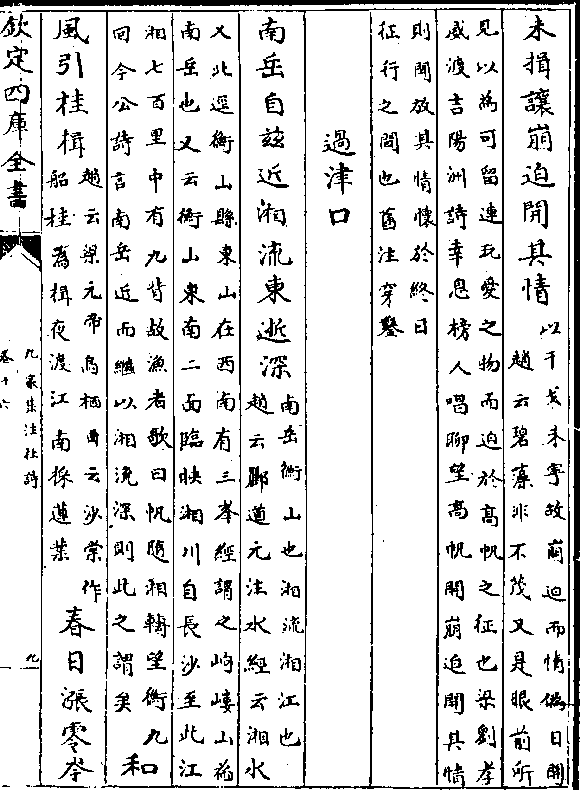 未揖讓崩迫開其情以干戈未寧故崩迫而情偽日開
趙云碧藻非不茂又是眼前所
見以為可留連玩愛之物而迫於高帆之征也梁劉孝
威渡吉陽洲詩幸息榜人唱聊望高帆開崩迫開其情
則開放其情懷於終日
征行之間也舊注穿鑿
過津口
南岳自兹近湘流東逝深南岳衡山也湘流湘江也
趙云酈道元注水經云湘水
又北逕衡山縣東山在西南有三峯經謂之岣嶁山為
南岳也又云衡山東南二面臨映湘川自長沙至此江
湘七百里中有九背故漁者歌曰帆隨湘轉望衡九
回今公詩言南岳近而繼以湘流深則此之謂矣
和
風引桂楫趙云梁元帝烏栖曲云沙棠作
船桂為楫夜渡江南採蓮葉
春日漲雲岑
欽定四庫全書
九家集注杜詩
卷十六
九